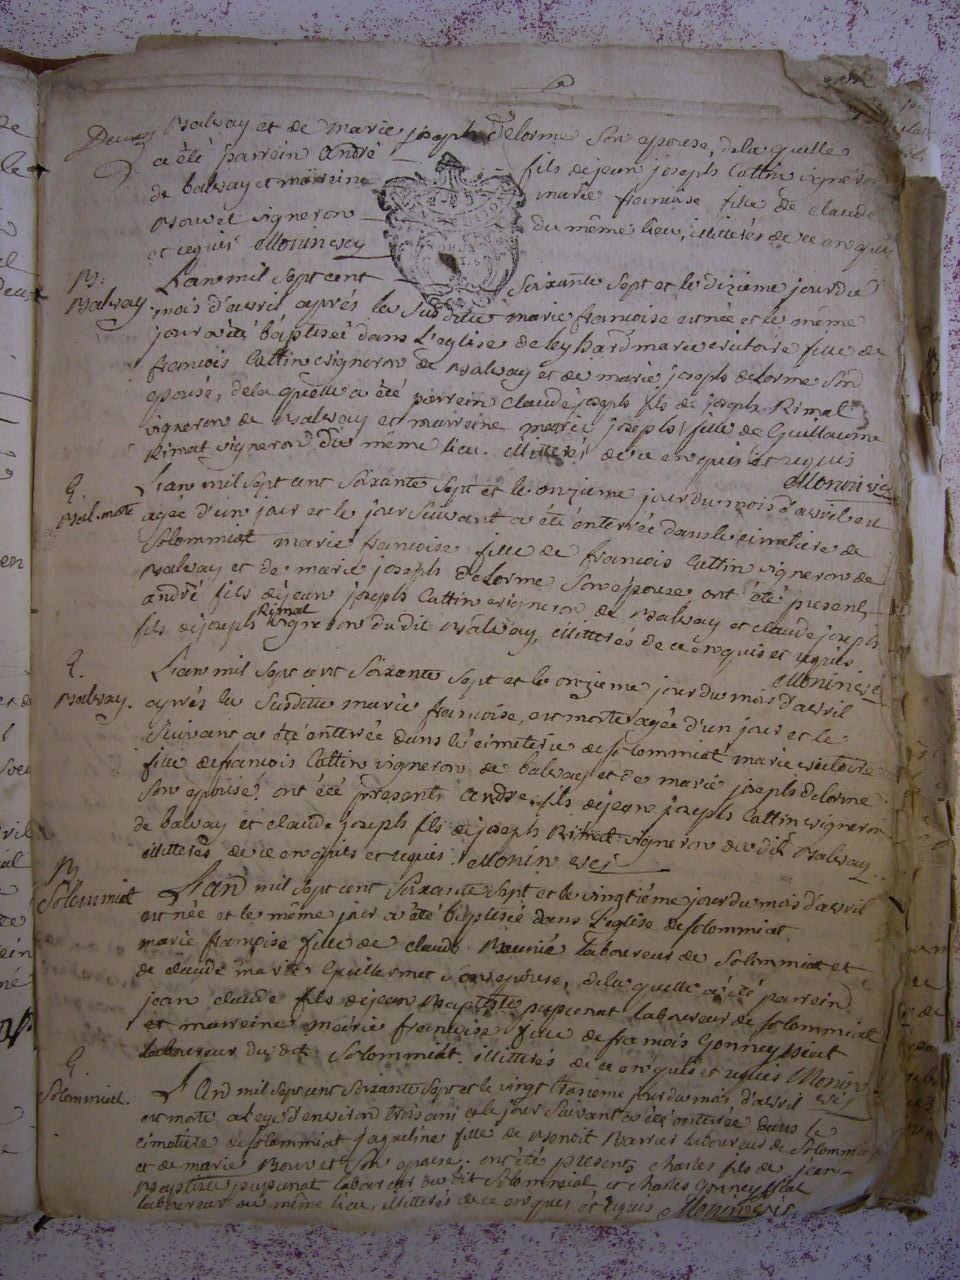 Deux
Balvay et de marie joseph Delorme son epouse, de la quelle
a été parrein André fils de jean joseph Cattin vigneron
de balvay et marreine marie francoise fille de claude
Bouvet vigneron du même lieu, illitterés de ce enquis
et requis Monin vic.
B.
Balvay.
L'an mil sept cent soixante sept et le dizieme jour du
mois d'avril après la susditte marie francoise est née et le même
jour a été baptisée dans l'eglise de leyssard marie victoire fille de
francois Cattin vigneron de Balvay et de marie joseph delorme son
epouse, de la quelle a été parrein Claude joseph fils de joseph Rimat
vigneron de Balvay et marreine marie joseph fille de Guillaume
Rimat vigneron du même lieu. illitterés de ce enquis et requis
Monin vic.
S.
Bal. morte
L'an mil sept cent soixante sept et le onzieme jour du mois d'avril est
agée d'un jour et le jour suivant a été enterrée dans le cimetiere de
Solommiat marie francoise fille de francois Cattin vigneron de
Balvay et de marie joseph Delorme son epouse ont été presents
andré fils de jean joseph Cattin vigneron de Balvay et claude joseph
fils de joseph Rimat vigneron du dit Balvay, illitterés de ce enquis et requis
Monin vic.
S.
Balvay.
L'an mil sept cent soixante sept et le onzieme jour du mois d'avril
après la susditte marie francoise, est morte agée d'un jour et le
suivant a été enterrée dans le cimetiere de solommiat marie victoire
fille de francois Cattin vigneron de balvay et de marie joseph delorme
son epouse. ont été presents André fils de jean joseph Cattin vigneron
de balvay et claude joseph fils de joseph Rimat vigneron du dit Balvay.
illitterés de ce enquis et requis. Monin vic.
B.
Solommiat
L'an mil sept cent soixante sept et le vingtième jour du mois d'avril
est née et le même jour a été baptisée dans l'eglise de solommiat
marie françoise fille de claude laboureur de Solommiat et
de claude marie Guillermet son epouse, de la quelle a été parrein
jean claude fils de jean Baptiste pupunat laboureur de solommiat
et marreine marie françoise fille de francois Gonneyssiat
laboureur du dit Solommiat. illitterés de ce enquis et requis Monin
vic.
S.
Solommiat.
L'an mil sept cent soixante sept et le vingt troisieme jour du mois d'avril
est morte a l'age d'environ trois ans et le jour suivant a été enterrée dans le
cimetiere de solommiat jaqueline fille de Benoit laboureur de Solommiat
et de marie Bouvet son epouse. ont été presents charles fils de jean
Baptiste pupunat laboureur du dit Solommiat et charles Gonneyssiat
laboureur du même lieu, illitterés de ce enquis et requis Monin vic.